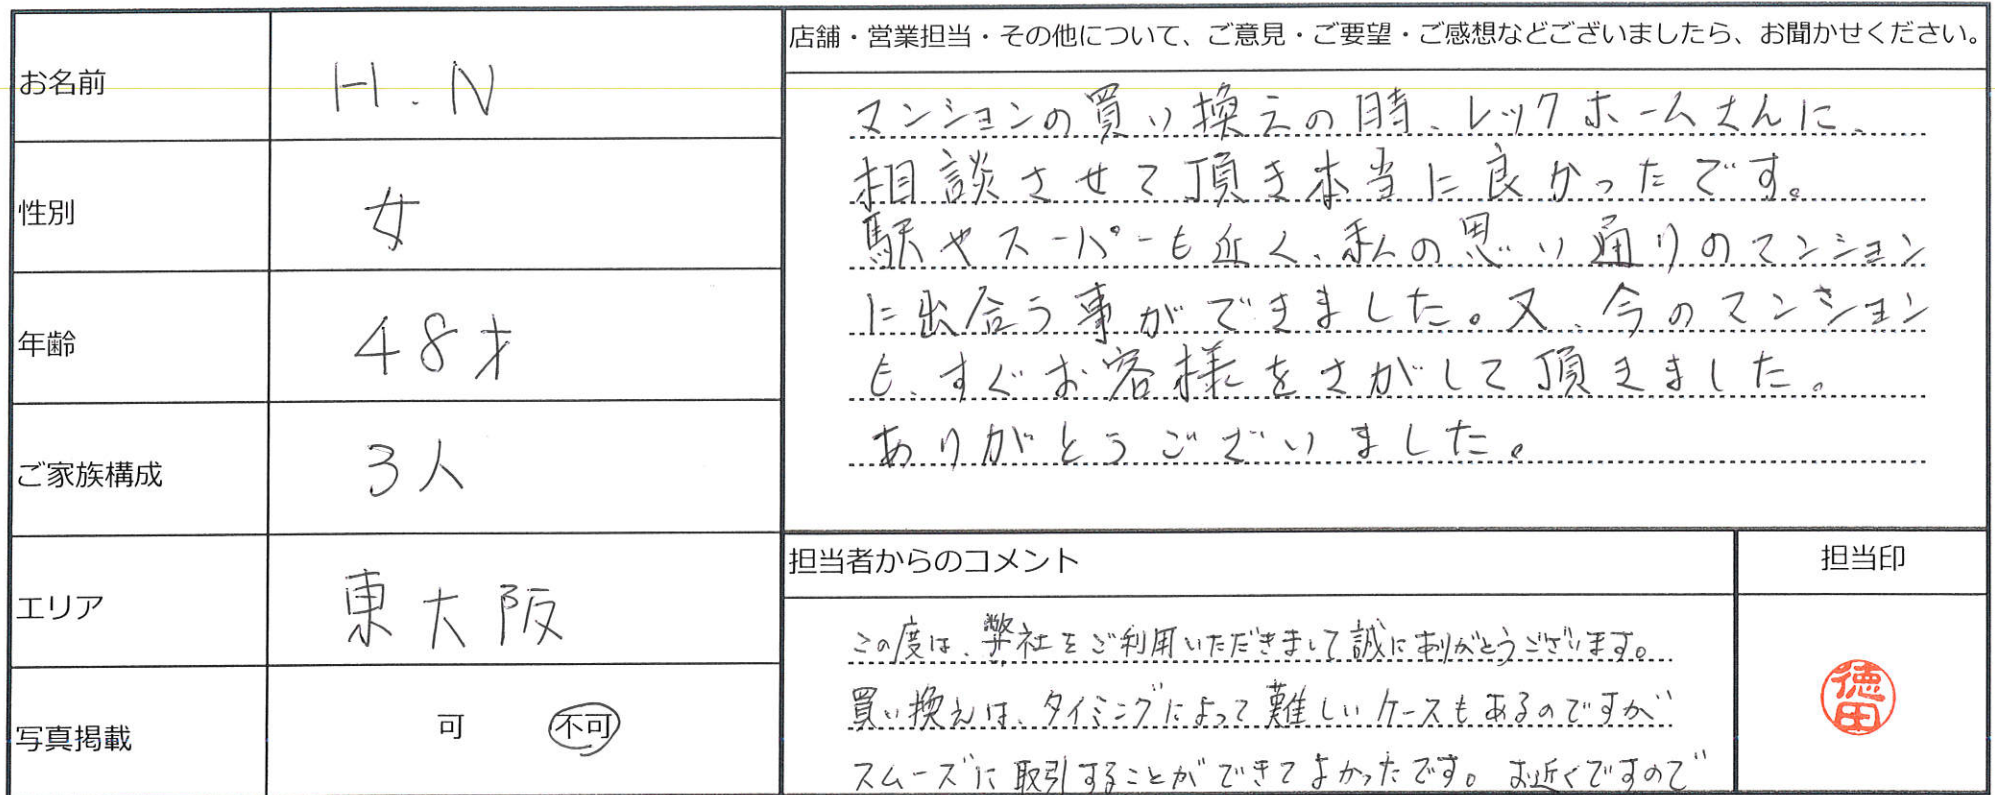 お名前 H.N
性別 女
年齢 48才
ご家族構成 3人
エリア 東大阪
写真掲載 可 不可
店舗・営業担当・その他について、ご意見・ご要望・ご感想などございましたら、お聞かせください。
マンションの買い換えの時、レックホームさんに、
相談させて頂き本当に良かったです。
駅やスーパーも近く、私の思い通りのマンション
に出合う事ができました。又、今のマンション
も、すぐお客様をさがして頂きました。
ありがとうございました。
担当者からのコメント
この度は、弊社をご利用いただきまして誠にありがとうございます。
買い換えは、タイミングによって難しいケースもあるのですが
スムーズに取引することができてよかったです。お近くですので
担当印
徳田